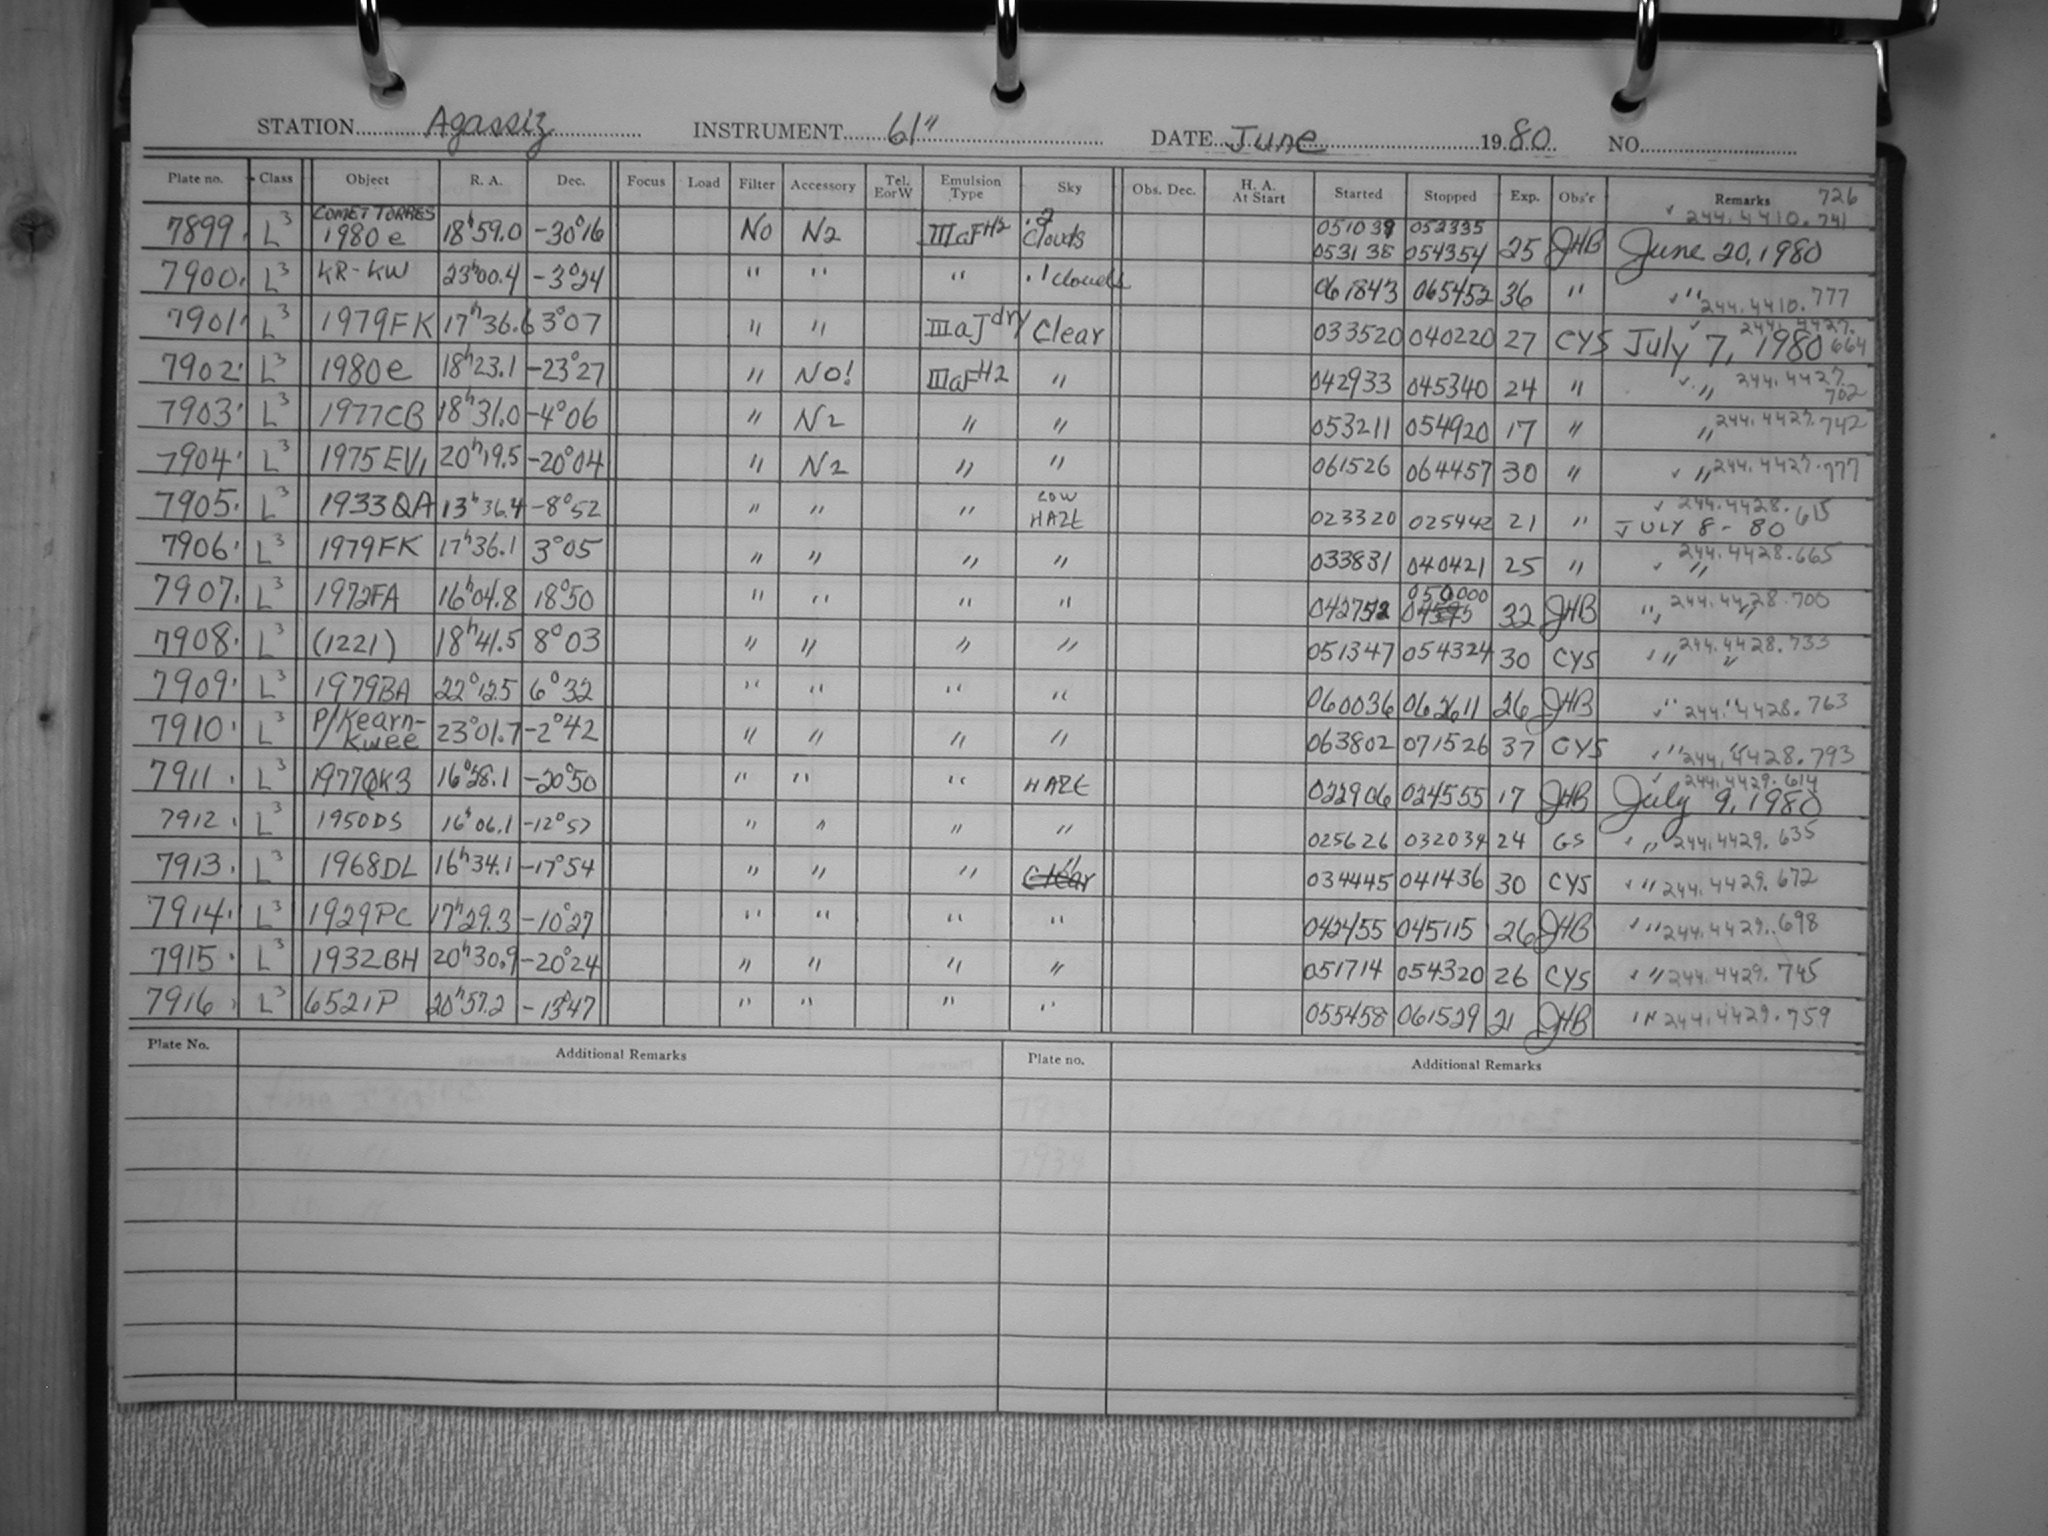 STATION Agassiz INSTRUMENT 61" DATE June 1980 NO.
Plate no. Class Object R. A. Dec. Focus Load Filter Accessory Tel. EorW Emulsion Type Sky Obs. Dec. H. A. At Start Started Stopped Exp. Obs'r Remarks 726
7899 L3 COMET TORRES 1980e 18h59.0 -30°16 NO N2 IIIaFH2 .2 Clouds 051039 052335 244.4410.741
053138 054354 25 JHB June 20, 1980
7900 L3 KR-KW 23h00.4 -3°24 " " " .1 clouds 061843 065452 36 " " 244.4410.777
7901 L3 1979FK 17h36.6 3°07 " " IIIaJ dry Clear 033520 040220 27 CYS July 7, 1980 244.4427.664
7902 L3 1980e 18h23.1 -23°27 " NO! IIIaFH2 " 042933 045340 24 " " 244.4427.702
7903 L3 1977CB 18h31.0 -4°06 " N2 " " 053211 054920 17 " " 244.4427.742
7904 L3 1975EV1 20h19.5 -20°04 " N2 " " 061526 064457 30 " " 244.4427.777
7905 L3 1933QA 13h36.4 -8°52 " " " LOW HAZE 023320 025442 21 " 244.4428.615 JULY 8-80
7906 L3 1979FK 17h36.1 3°05 " " " " 033831 040421 25 " " 244.4428.665
7907 L3 1972FA 16h04.8 18°50 " " " " 042752 050000 32 JHB " 244.4428.700 "
7908 L3 (1221) 18h41.5 8°03 " " " " 051347 054324 30 CYS " 244.4428.733 "
7909 L3 1979BA 22°12.5 6°32 " " " " 060036 062611 26 JHB " " 244.4428.763
7910 L3 P/Kearn-Kwee 23°01.7 -2°42 " " " " 063802 071526 37 CYS " " 244.4428.793
7911 L3 1977QK3 16°28.1 -20°50 " " " HAZE 022906 024555 17 JHB 244.4429.614 July 9, 1980
7912 L3 1950DS 16h06.1 -12°57 " " " " 025626 032039 24 GS " 244.4429.635
7913 L3 1968DL 16h34.1 -17°54 " " " Clear " 034445 041436 30 CYS " 244.4429.672
7914 L3 1929PC 17h29.3 -10°27 " " " " 042455 045115 26 JHB " 244.4429.698
7915 L3 1932BH 20h30.9 -20°24 " " " " 051714 054320 26 CYS " 244.4429.745
7916 L3 6521P 20h57.2 -13°47 " " " " 055458 061529 21 JHB " 244.4429.759
Plate No. Additional Remarks Plate no. Additional Remarks